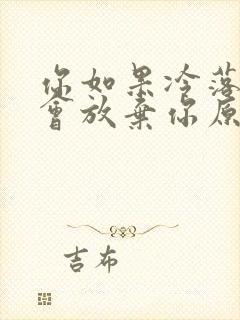 你如果冷落
會放棄你原
吉布